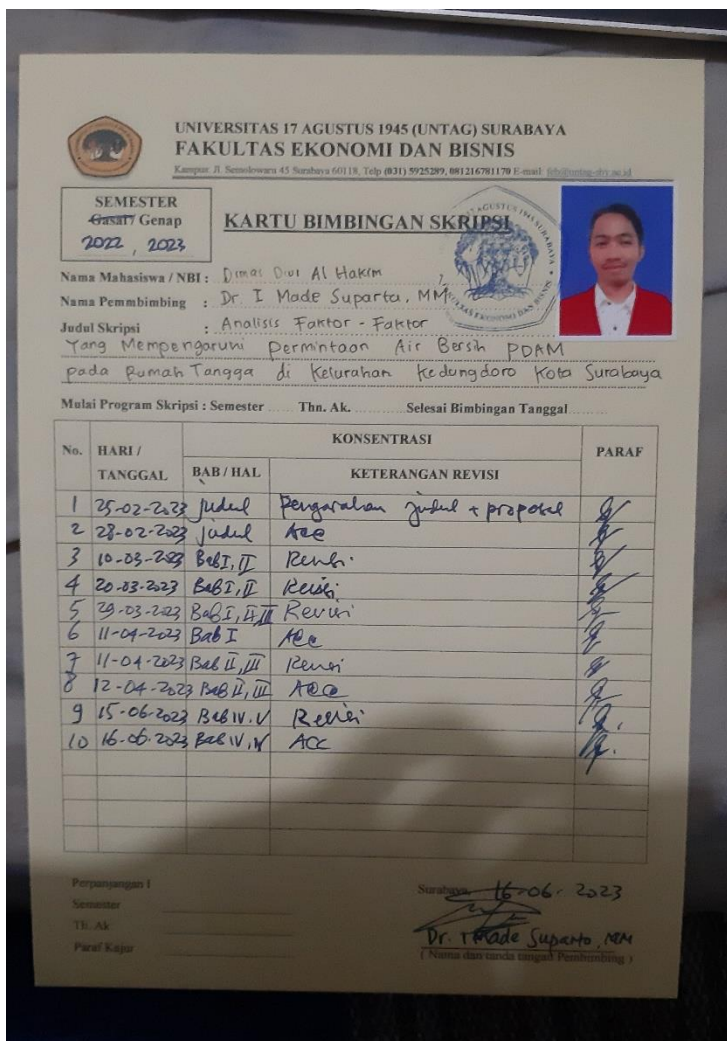 UNIVERSITAS 17 AGUSTUS 1945 (UNTAG) SURABAYA
FAKULTAS EKONOMI DAN BISNIS
Kampus: Jl. Semolowaru 45 Surabaya 60118, Telp (031) 5925289, 081216781170 E-mail: feb@untag-sby.ac.id
SEMESTER
Gasal / Genap
2022, 2023
KARTU BIMBINGAN SKRIPSI
Nama Mahasiswa / NBI : Dimas Dwi Al Hakim
Nama Pemmbimbing : Dr. I Made Suparta, MM
Judul Skripsi : Analisis Faktor - Faktor
Yang Mempengaruhi Permintaan Air Bersih PDAM
pada Rumah Tangga di Kelurahan Kedungdoro Kota Surabaya
Mulai Program Skripsi : Semester Thn. Ak. Selesai Bimbingan Tanggal
No. HARI / TANGGAL KONSENTRASI PARAF
BAB / HAL KETERANGAN REVISI
1 25-02-2023 judul Pengarahan judul + proposal
2 28-02-2023 judul Acc
3 10-03-2023 Bab I, II Revisi
4 20-03-2023 Bab I, II Revisi
5 29-03-2023 Bab I, II, III Revisi
6 11-04-2023 Bab I Acc
7 11-04-2023 Bab II, III Revisi
8 12-04-2023 Bab II, III Acc
9 15-06-2023 Bab IV, V Revisi
10 16-06-2023 Bab IV, V ACC
Perpanjangan I
Semester
Th. Ak
Paraf Kajur
Surabaya, 16-06-2023
Dr. I Made Suparta, MM
( Nama dan tanda tangan Pembimbing )